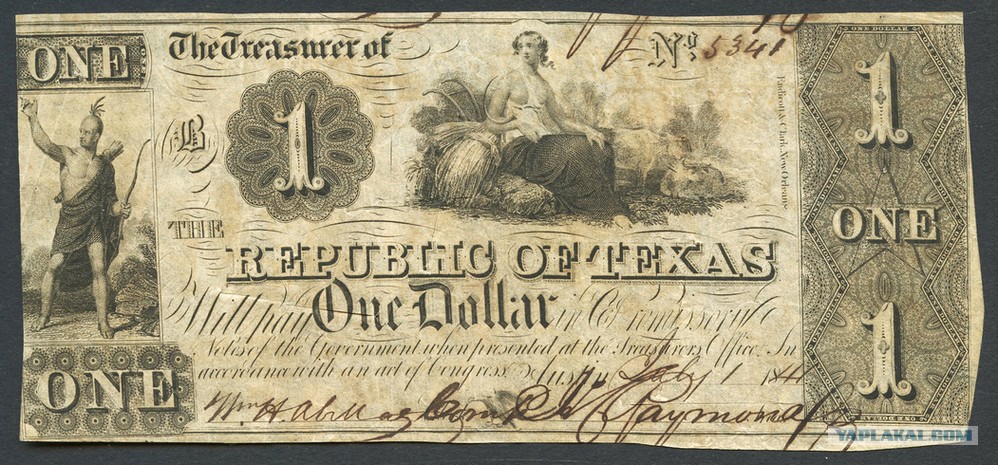 ONE
The Treasurer of
Nº 5341
B
1
THE
REPUBLIC OF TEXAS
Will pay One Dollar in Promissory
Notes of the Government when presented at the Treasurers Office. In
accordance with an act of Congress Austin 1 1841
ONE
Endicott & Clark, New Orleans
ONE DOLLAR
1
ONE
1
ONE DOLLAR
YAPLAKAL.COM